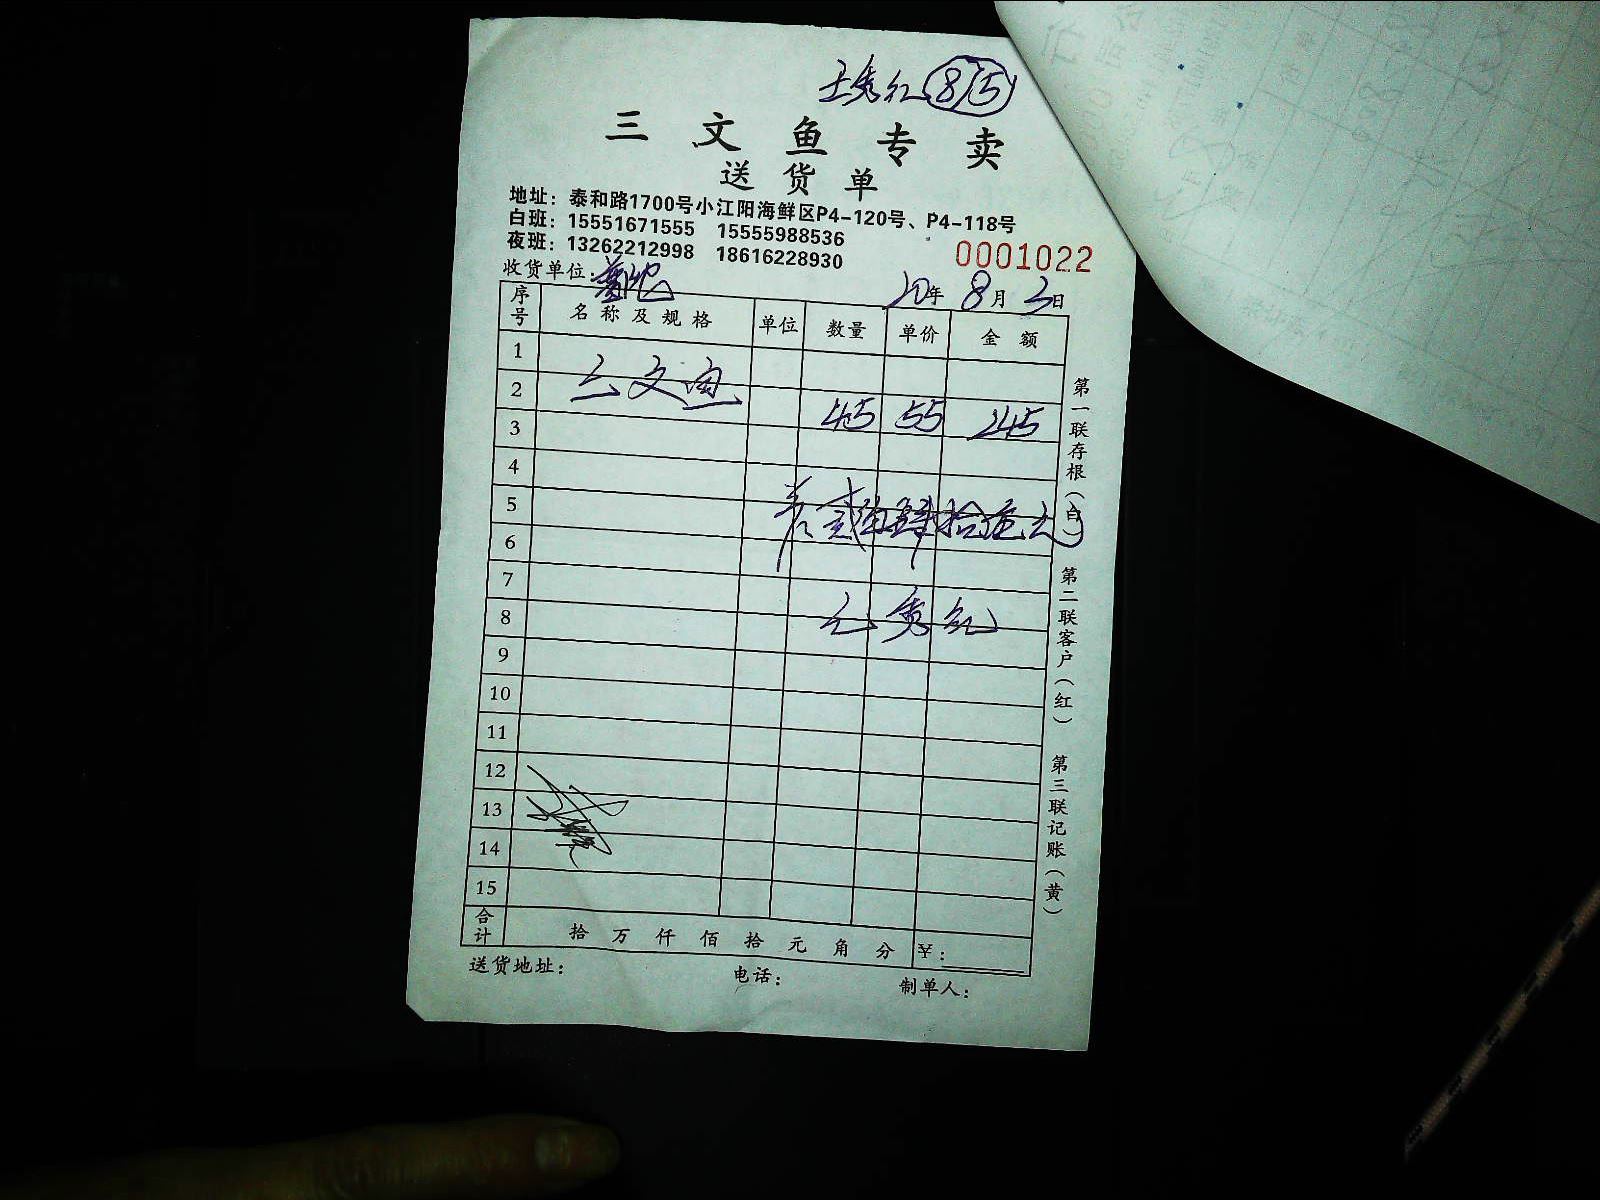 王秀红 8/5
三文鱼专卖
送货单
地址：泰和路1700号小江阳海鲜区P4-120号、P4-118号
白班：15551671555 15555988536
夜班：13262212998 18616228930
0001022
收货单位：
20年 8月 3日
序号 名称及规格 单位 数量 单价 金额
1
2 三文鱼 45 55 245
3
4
5 贰佰肆拾伍元
6
7
8 王秀红
9
10
11
12
13
14
15
合计 拾 万 仟 佰 拾 元 角 分 ¥：
送货地址： 电话： 制单人：
第一联存根（白）
第二联客户（红）
第三联记账（黄）